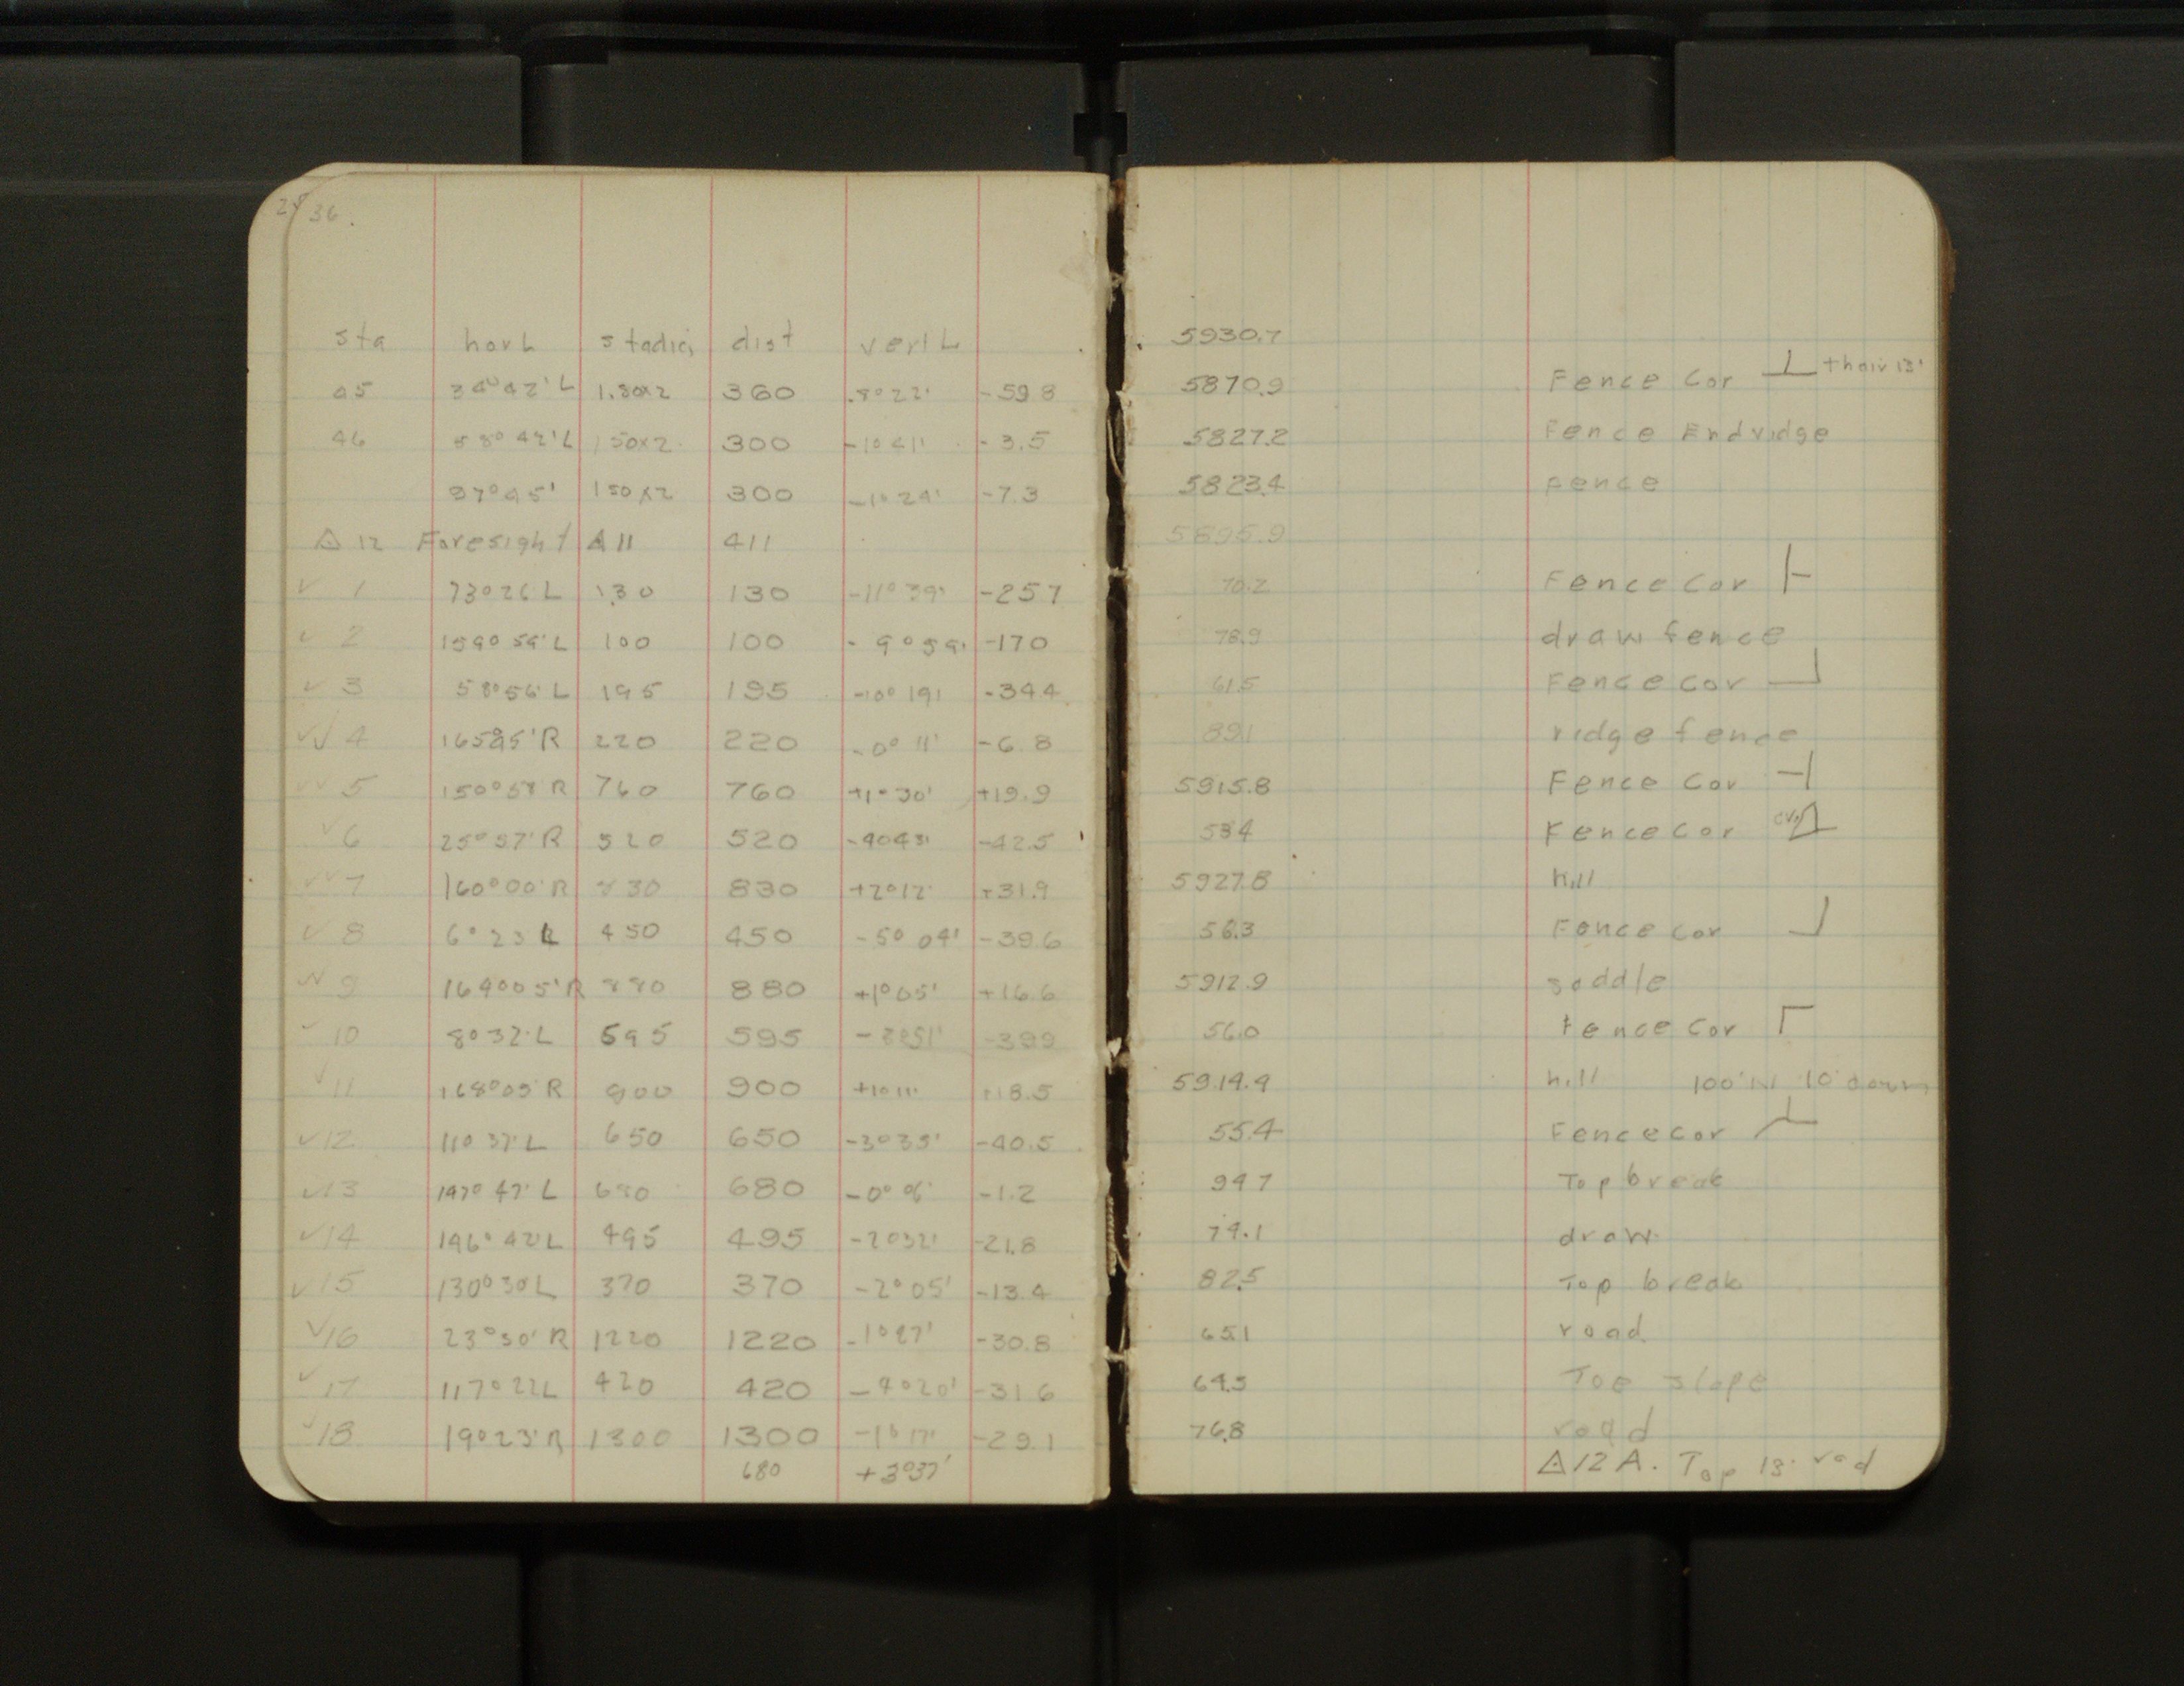 36.
sta hor L stadia dist vert L 5930.7
45 34°42'L 1.80x2 360 -8°22' -59.8 5870.9 Fence Cor + hair 13'
46 58°42'L 150x2 300 -1°41' -3.5 5827.2 Fence End ridge
97°45' 150x2 300 -1°24' -7.3 5823.4 fence
△12 Foresight △11 411 5895.9
✓ 1 73°26'L 130 130 -11°39' -257 70.2 Fence Cor
✓ 2 159°59'L 100 100 -9°59' -170 78.9 draw fence
✓ 3 58°56'L 195 195 -10°19' -34.4 61.5 Fence Cor
✓✓ 4 165°45'R 220 220 -0°11' -6.8 891 ridge fence
✓✓ 5 150°58'R 760 760 +1°30' +19.9 5915.8 Fence Cor
✓ 6 25°57'R 520 520 -4°43' -42.5 534 Fence Cor
✓✓ 7 160°00'R 830 830 +2°12' +31.9 5927.8 hill
✓ 8 6°23 450 450 -5°04' -39.6 56.3 Fence Cor
✓✓ 9 164°05'R 880 880 +1°05' +16.6 5912.9 saddle
✓ 10 8°32'L 595 595 -3°51' -399 56.0 fence Cor
✓ 11 168°05'R 900 900 +1°11' +18.5 5914.4 hill 100' 10' down
✓ 12 11°37'L 650 650 -3°35' -40.5 55.4 Fence Cor
✓ 13 147°47'L 680 680 -0°06' -1.2 947 Top break
✓ 14 146°42'L 495 495 -2°32' -21.8 74.1 draw
✓ 15 130°30'L 370 370 -2°05' -13.4 82.5 Top break
✓ 16 23°30'R 1220 1220 -1°27' -30.8 651 road
✓ 17 117°22'L 420 420 -4°20' -31.6 64.3 Toe slope
✓ 18 19°23'R 1300 1300 -1°17' -29.1 76.8 road
680 +3°37' △12A. Top 13' rod